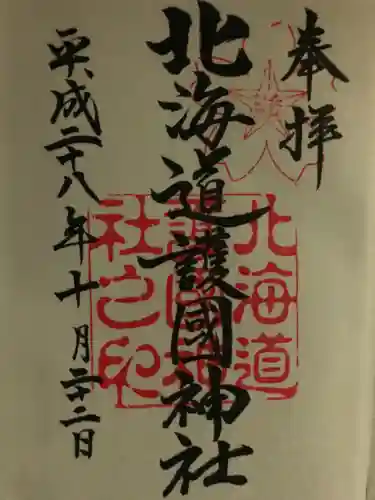 奉拝
北海道護國神社
平成二十八年十月二十二日
北海道
護國神
社之印